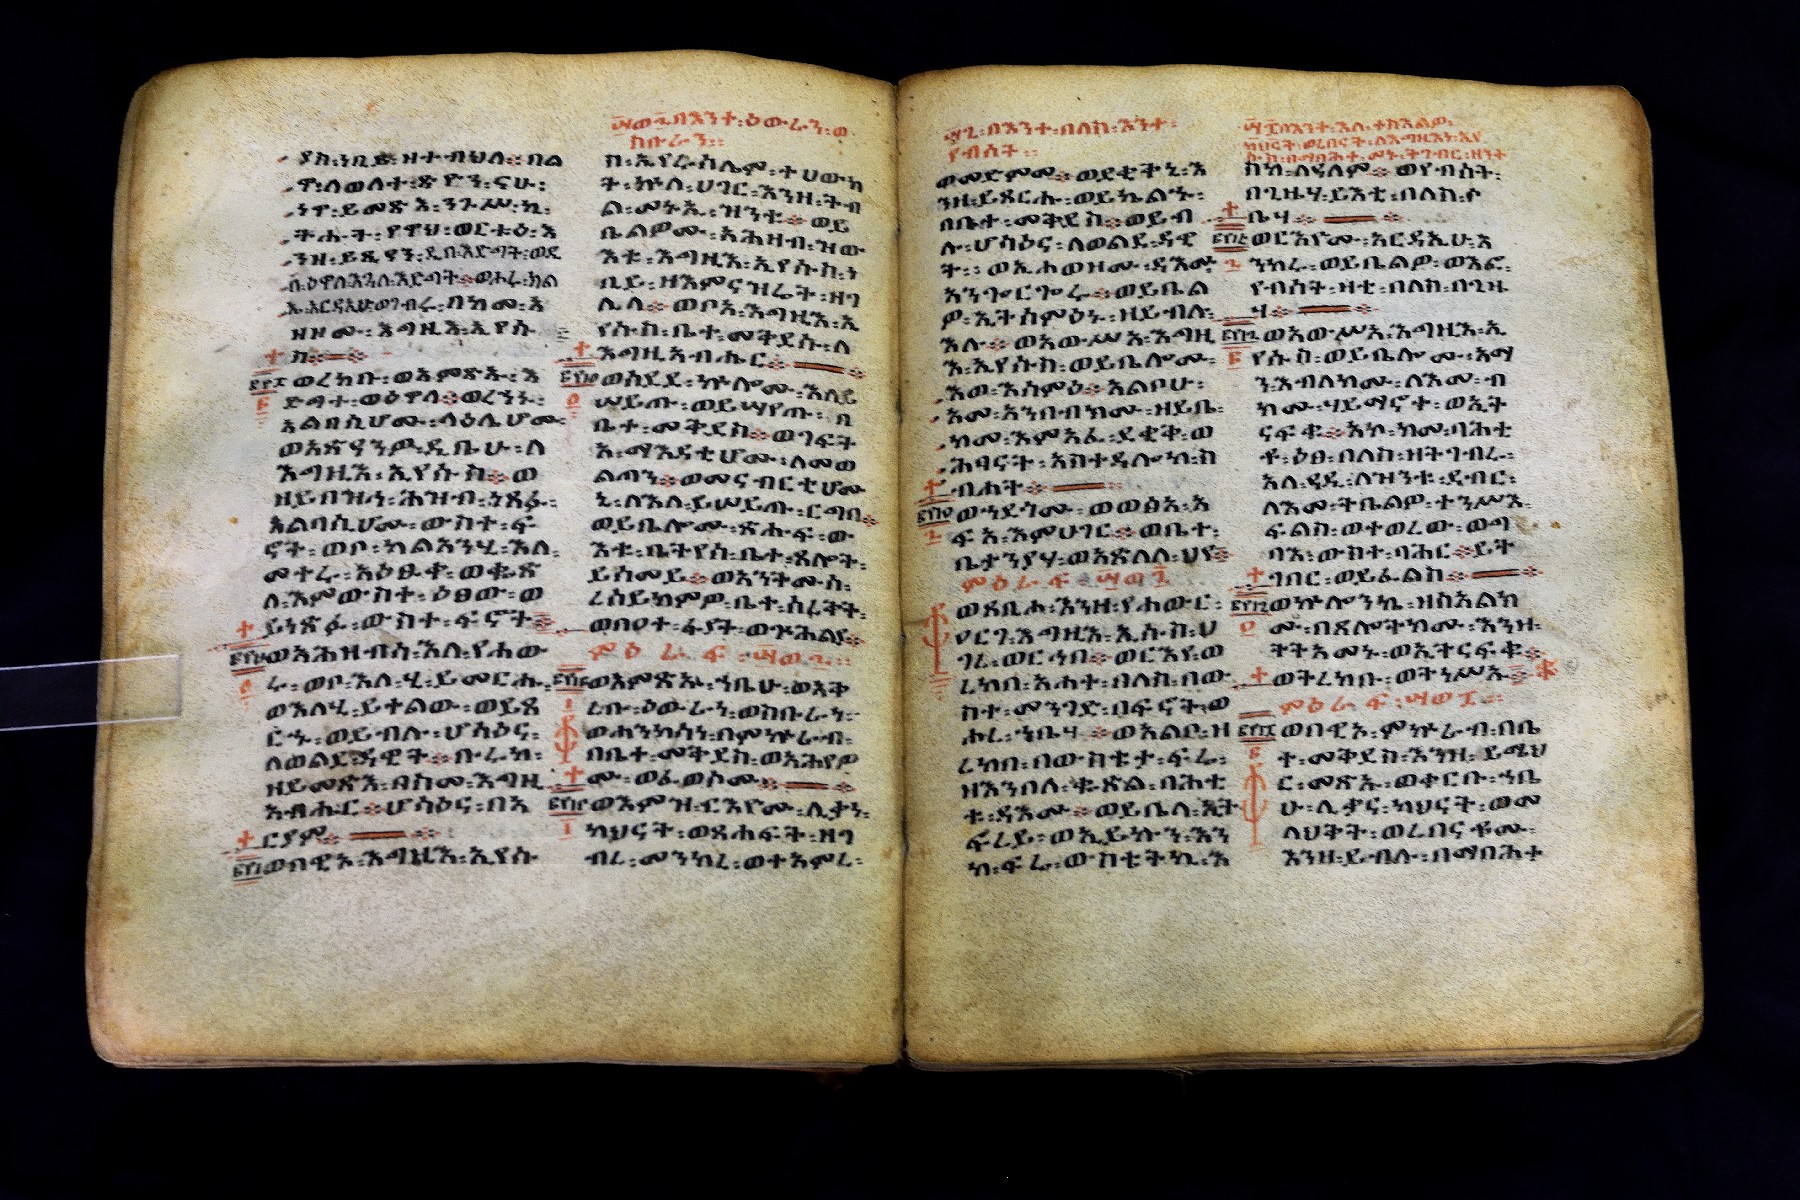 ያከ፡ነቢይ፡ዘተብህለ፡በል
ዋ፡ለወለተ፡ጽዮን፡ናሁ፡
ነዋ፡ይመጽእ፡ንጉሥኪ፡
ትሑት፡የዋህ፡ወርቱዕ፡እ
ንዘ፡ይጼዓን፡ዲበ፡እድግት፡ወዲ
በ፡ዕዋለ፡እጓለ፡እድግት፡ወሖሩ፡ክል
ኤ፡አርዳኢሁ፡ወገብሩ፡በከመ፡አ
ዘዞሙ፡እግዚእ፡ኢየሱ
ስ።
ወረከቡ፡ወአምጽኡ፡እ
ድግተ፡ወዕዋለ፡ወረሐኑ፡
አልባሲሆሙ፡ላዕሌሆሙ፡
ወአጽዓንዎ፡ዲቤሁ፡ለ
እግዚእ፡ኢየሱስ፡ወ
ዘይበዝኅ፡ሕዝብ፡ነጸፉ፡
አልባሲሆሙ፡ውስተ፡ፍ
ኖት፡ወቦ፡ካልአንሂ፡እለ፡
መተሩ፡አዕፁቀ፡ወቈጽ
ለ፡እምውስተ፡ዕፀው፡ወ
ይነጽፉ፡ውስተ፡ፍኖት።
ወአሕዛብሰ፡እለ፡የሐው
ሩ፡ወቦ፡እለሂ፡ይመርሑ፡
ወእለሂ፡ይተልው፡ወይጸ
ርኁ፡ወይብሉ፡ሆሳዕና፡
ለወልደ፡ዳዊት፡ቡሩክ፡
ዘይመጽእ፡በስመ፡እግዚ
አብሔር፡ሆሳዕና፡በአ
ርያም።
ወበዊኦ፡እግዚእ፡ኢየሱ
፷ወ፪በእንተ፡ዕውራን፡ወ
ስቡራን፡
ስ፡ኢየሩሳሌም፡ተሀውከ
ት፡ኵላ፡ሀገር፡እንዘ፡ትብ
ል፡መኑ፡ዝንቱ፡ወይ
ቤልዎሙ፡አሕዛብ፡ዝው
እቱ፡እግዚእ፡ኢየሱስ፡ነ
ቢይ፡ዘእምናዝሬት፡ዘገ
ሊላ፡ወቦአ፡እግዚእ፡ኢ
የሱስ፡ቤተ፡መቅደሱ፡ለ
እግዚአብሔር።
ወሰደደ፡ኵሎሙ፡እለይ
ሠይጡ፡ወይሣየጡ፡በ
ቤተ፡መቅደስ፡ወገፍት
አ፡ማእዳቲሆሙ፡ለመወ
ልጣን፡ወመናብርቲሆሙ
ኒ፡ለእለ፡ይሠይጡ፡ርግበ።
ወይቤሎሙ፡ጽሑፍ፡ው
እቱ፡ቤትየሰ፡ቤተ፡ጸሎት፡
ይሰመይ፡ወአንትሙሰ፡
ረሰይክምዎ፡ቤተ፡ሰረቅት፡
ወበዐተ፡ፈያት፡ወጕሕልያ።
ምዕራፍ፡፷ወ፪፡
ወአምጽኡ፡ኀቤሁ፡ወአቅ
ረቡ፡ዕውራነ፡ወስቡራነ፡
ወሐንካሳነ፡በምኵራብ፡
በቤተ፡መቅደስ፡ወአሕየዎ
ሙ፡ወፈወሶሙ።
ወእምዝ፡ርእዮሙ፡ሊቃነ፡
ካህናት፡ወጸሐፍት፡ዘገ
ብረ፡መንክረ፡ወተአምረ፡
፷፫፡በእንተ፡በለስ፡እንተ፡
የብሰት፡
ወመድምመ፡ወደቂቅኒ፡እ
ንዘ፡ይጸርሑ፡ወይኬልሑ፡
በቤተ፡መቅደስ፡ወይብ
ሉ፡ሆሳዕና፡ለወልደ፡ዳዊ
ት፡ወኢሐወዞሙ፡ዳእሙ፡
አንጐርጐሩ፡ወይቤል
ዎ፡ኢትሰምዕኑ፡ዘይብሉ፡
እሉ፡ወአውሥአ፡እግዚ
እ፡ኢየሱስ፡ወይቤሎሙ፡
እወ፡እሰምዕ፡አልቦሁ፡
አመ፡አንበብክሙ፡ዘይቤ፡
ከመ፡እምአፈ፡ደቂቅ፡ወ
ሕፃናት፡አስተዳሎከ፡ስ
ብሐተ።
ወኀደጎሙ፡ወወፅአ፡አ
ፍአ፡እምሀገር፡ወቤተ፡
ቢታንያሃ፡ወአጽለለ፡ህየ።
ምዕራፍ፡፷ወ፫
ወጸቢሖ፡እንዘ፡የሐውር፡
ዐርገ፡እግዚእ፡ኢሱስ፡ሀ
ገረ፡ወርኅበ፡ወርእየ፡ወ
ረከበ፡አሐተ፡በለሰ፡በው
ስተ፡መንገድ፡በፍኖት፡ወ
ሖረ፡ኀቤሃ፡ወአልቦ፡ዘ
ረከበ፡በውስቴታ፡ፍሬ፡
ዘእንበለ፡ቈጽል፡በሕቲ
ቱ፡ዳእሙ፡ወይቤላ፡ኢት
ፍረይ፡ወኢይኩን፡እን
ከ፡ፍሬ፡ውስቴትኪ፡እ
፷፬በእንተ፡እለ፡ተስእልዎ፡
ካህናት፡ወረበናት፡ለእግዚእነ፡ኢየ
ሱስ፡በማበሕተ፡መኑ፡ትገብር፡ዘንተ
ስከ፡ለዓለም፡ወየብሰት፡
በጊዜሃ፡ይእቲ፡በለስ፡ሶ
ቤሃ።
ወርእዮሙ፡አርዳኢሁ፡አ
ንከሩ፡ወይቤልዎ፡ወእፎ፡
የብሰት፡ዛቲ፡በለስ፡በጊዜ
ሃ።
ወአውሥአ፡እግዚእ፡ኢ
የሱስ፡ወይቤሎሙ፡አማ
ን፡እብለክሙ፡ለእመ፡ብ
ክሙ፡ሃይማኖተ፡ወኢት
ናፍቁ፡አኮ፡ከመ፡ባሕቲ
ቶ፡ዕፀ፡በለስ፡ዘትገብሩ፡
አላ፡ዓዲ፡ለዝንቱ፡ደብር፡
ለእመ፡ትቤልዎ፡ተንሥእ፡
ፍልስ፡ወተወረው፡ወግ
ባእ፡ውስተ፡ባሕር፡ይት
ገበር፡ወይፈልስ።
ወኵሎንኬ፡ዘሰአልክ
ሙ፡በጸሎትክሙ፡እንዘ፡
ትትአመኑ፡ወኢትናፍቁ፡
ወትረክቡ፡ወትነሥኡ።
ምዕራፍ፡፷ወ፬፡
ወበዊኦ፡ምኵራብ፡በቤ
ተ፡መቅደስ፡እንዘ፡ይሜህ
ር፡መጽኡ፡ወቀርቡ፡ኀቤ
ሁ፡ሊቃና፡ካህናት፡ወመ
ላህቅት፡ወረበናቶሙ፡
እንዘ፡ይብሉ፡በማበሕተ